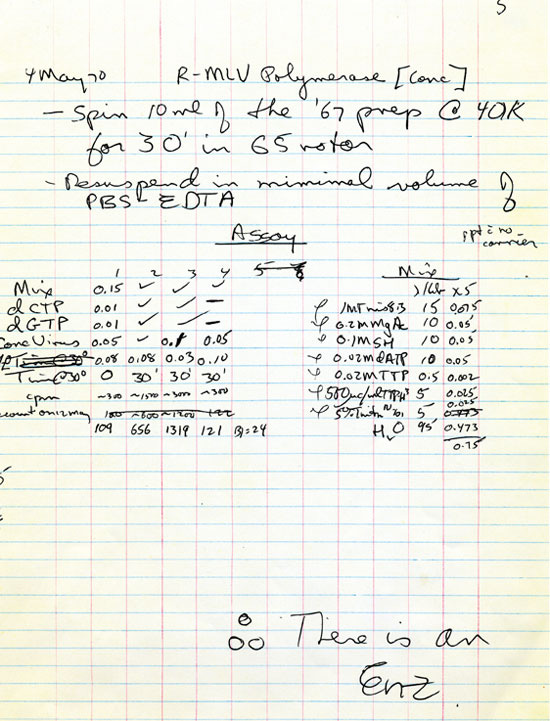 5
4 May 70 R-MLV Polymerase [Conc]
- Spin 10 ml of the '67 prep @ 40K
for 30' in 65 rotor
- Resuspend in minimal volume of
PBS-EDTA
Assay
ppt no
carrier
1 2 3 4 Mix
Mix 0.15 ✓ ✓ ✓
dCTP 0.01 ✓ ✓ —
dGTP 0.01 ✓ ✓ —
Conc Virus 0.05 ✓ 0.1 0.05
0.08 0.08 0.03 0.10
Time @30° 0 30' 30' 30'
cpm ~300 ~1500 ~3000 ~300
count on 12 May
109 656 1319 121 B=24
x5
15 0.075
0.2M MgAc 10 0.05
0.1M SH 10 0.05
0.02M dATP 10 0.05
0.02M TTP 0.5 0.002
5 0.025
5 0.025
H2O 95 0.473
0.75
There is an
Enz